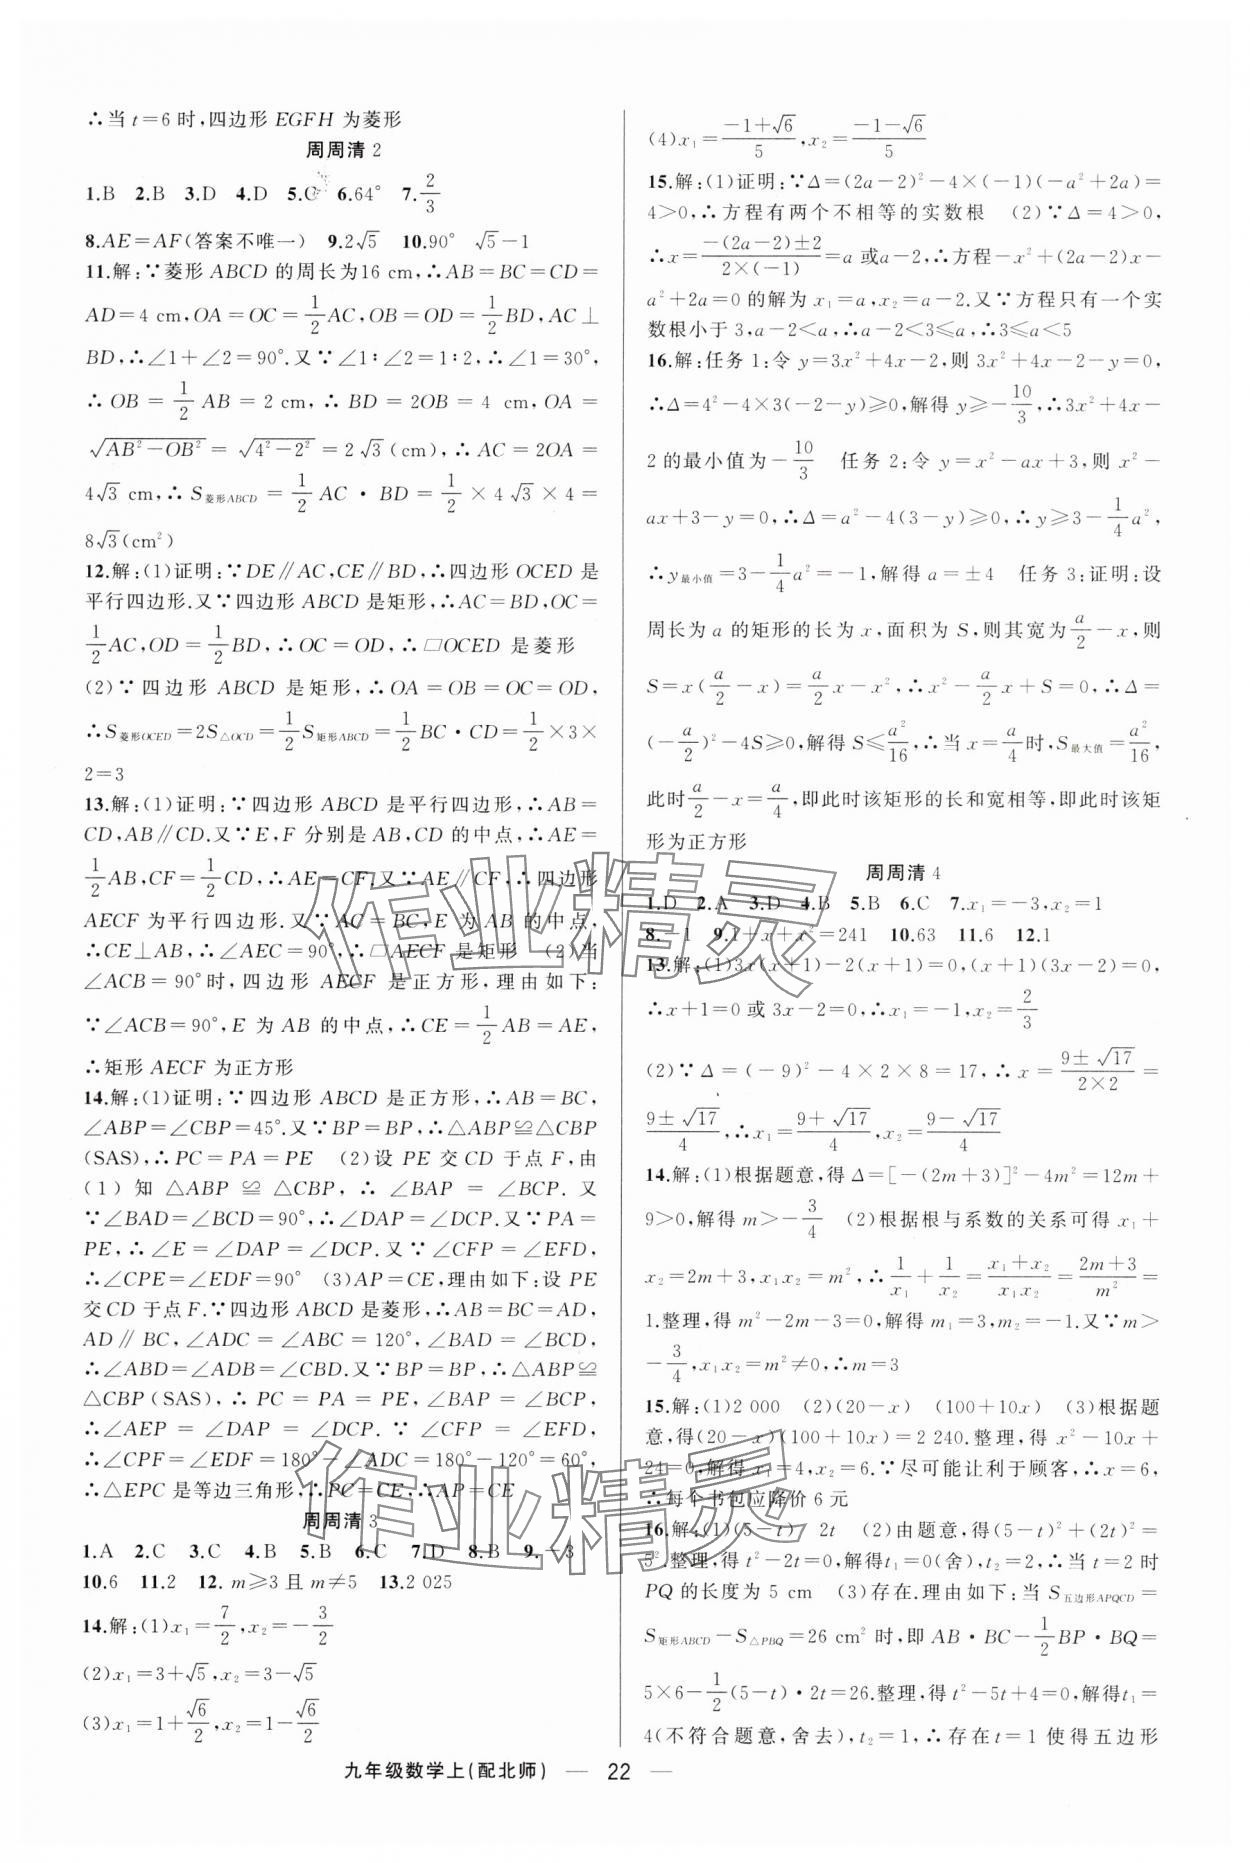 ∴当 t=6 时,四边形 EGFH 为菱形
周周清 2
1.B 2.B 3.D 4.D 5.C 6.64° 7.2/3
8.AE=AF(答案不唯一) 9.2√5 10.90° √5-1
11.解:∵菱形 ABCD 的周长为16 cm,∴AB=BC=CD=
AD=4 cm,OA=OC=1/2AC,OB=OD=1/2BD,AC⊥
BD,∴∠1+∠2=90°.又∵∠1∶∠2=1∶2,∴∠1=30°,
∴OB=1/2AB=2 cm,∴BD=2OB=4 cm,OA=
√(AB²-OB²)=√(4²-2²)=2√3(cm),∴AC=2OA=
4√3 cm,∴S菱形ABCD=1/2AC·BD=1/2×4√3×4=
8√3(cm²)
12.解:(1)证明:∵DE∥AC,CE∥BD,∴四边形 OCED 是
平行四边形.又∵四边形 ABCD 是矩形,∴AC=BD,OC=
1/2AC,OD=1/2BD,∴OC=OD,∴□OCED 是菱形
(2)∵四边形 ABCD 是矩形,∴OA=OB=OC=OD,
∴S菱形OCED=2S△OCD=1/2S矩形ABCD=1/2BC·CD=1/2×3×
2=3
13.解:(1)证明:∵四边形 ABCD 是平行四边形,∴AB=
CD,AB∥CD.又∵E,F 分别是 AB,CD 的中点,∴AE=
1/2AB,CF=1/2CD,∴AE=CF.又∵AE∥CF,∴四边形
AECF 为平行四边形.又∵AC=BC,E 为 AB 的中点,
∴CE⊥AB,∴∠AEC=90°,∴□AECF 是矩形 (2)当
∠ACB=90°时,四边形 AECF 是正方形,理由如下:
∵∠ACB=90°,E 为 AB 的中点,∴CE=1/2AB=AE,
∴矩形 AECF 为正方形
14.解:(1)证明:∵四边形 ABCD 是正方形,∴AB=BC,
∠ABP=∠CBP=45°.又∵BP=BP,∴△ABP≌△CBP
(SAS),∴PC=PA=PE (2)设 PE 交 CD 于点 F,由
(1)知△ABP≌△CBP,∴∠BAP=∠BCP.又
∵∠BAD=∠BCD=90°,∴∠DAP=∠DCP.又∵PA=
PE,∴∠E=∠DAP=∠DCP.又∵∠CFP=∠EFD,
∴∠CPE=∠EDF=90° (3)AP=CE,理由如下:设 PE
交 CD 于点 F.∵四边形 ABCD 是菱形,∴AB=BC=AD,
AD∥BC,∠ADC=∠ABC=120°,∠BAD=∠BCD,
∴∠ABD=∠ADB=∠CBD.又∵BP=BP,∴△ABP≌
△CBP(SAS),∴PC=PA=PE,∠BAP=∠BCP,
∴∠AEP=∠DAP=∠DCP.∵∠CFP=∠EFD,
∴∠CPF=∠EDF=180°-∠ADC=180°-120°=60°,
∴△EPC 是等边三角形,∴PC=CE,∴AP=CE
周周清 3
1.A 2.C 3.C 4.B 5.B 6.C 7.D 8.B 9.-3
10.6 11.2 12.m≥3 且 m≠5 13.2 025
14.解:(1)x₁=7/2,x₂=-3/2
(2)x₁=3+√5,x₂=3-√5
(3)x₁=1+√6/2,x₂=1-√6/2
(4)x₁=(-1+√6)/5,x₂=(-1-√6)/5
15.解:(1)证明:∵Δ=(2a-2)²-4×(-1)(-a²+2a)=
4>0,∴方程有两个不相等的实数根 (2)∵Δ=4>0,
∴x=(-(2a-2)±2)/(2×(-1))=a 或a-2,∴方程-x²+(2a-2)x-
a²+2a=0 的解为 x₁=a,x₂=a-2.又∵方程只有一个实
数根小于 3,a-2<a,∴a-2<3≤a,∴3≤a<5
16.解:任务 1:令 y=3x²+4x-2,则 3x²+4x-2-y=0,
∴Δ=4²-4×3(-2-y)≥0,解得 y≥-10/3,∴3x²+4x-
2 的最小值为-10/3 任务 2:令 y=x²-ax+3,则 x²-
ax+3-y=0,∴Δ=a²-4(3-y)≥0,∴y≥3-1/4a²,
∴y最小值=3-1/4a²=-1,解得 a=±4 任务 3:证明:设
周长为 a 的矩形的长为 x,面积为 S,则其宽为a/2-x,则
S=x(a/2-x)=a/2x-x²,∴x²-a/2x+S=0,∴Δ=
(-a/2)²-4S≥0,解得 S≤a²/16,∴当 x=a/4时,S最大值=a²/16,
此时a/2-x=a/4,即此时该矩形的长和宽相等,即此时该矩
形为正方形
周周清 4
1.D 2.A 3.D 4.B 5.B 6.C 7.x₁=-3,x₂=1
8.-1 9.1+x+x²=241 10.63 11.6 12.1
13.解:(1)3x(x+1)-2(x+1)=0,(x+1)(3x-2)=0,
∴x+1=0 或 3x-2=0,∴x₁=-1,x₂=2/3
(2)∵Δ=(-9)²-4×2×8=17,∴x=(9±√17)/(2×2)=
(9±√17)/4,∴x₁=(9+√17)/4,x₂=(9-√17)/4
14.解:(1)根据题意,得 Δ=[-(2m+3)]²-4m²=12m+
9>0,解得 m>-3/4 (2)根据根与系数的关系可得 x₁+
x₂=2m+3,x₁x₂=m²,∴1/x₁+1/x₂=(x₁+x₂)/(x₁x₂)=(2m+3)/m²=
1.整理,得 m²-2m-3=0,解得 m₁=3,m₂=-1.又∵m>
-3/4,x₁x₂=m²≠0,∴m=3
15.解:(1)2 000 (2)(20-x) (100+10x) (3)根据题
意,得(20-x)(100+10x)=2 240.整理,得 x²-10x+
24=0,解得 x₁=4,x₂=6.∵尽可能让利于顾客,∴x=6,
∴每个书包应降价 6 元
16.解:(1)(5-t) 2t (2)由题意,得(5-t)²+(2t)²=
5².整理,得 t²-2t=0,解得t₁=0(舍),t₂=2,∴当 t=2 时
PQ 的长度为 5 cm (3)存在.理由如下:当 S五边形APQCD=
S矩形ABCD-S△PBQ=26 cm² 时,即 AB·BC-1/2BP·BQ=
5×6-1/2(5-t)·2t=26.整理,得 t²-5t+4=0,解得t₁=
4(不符合题意,舍去),t₂=1,∴存在 t=1 使得五边形
九年级数学上(配北师) — 22 —
作业精灵
作业精灵